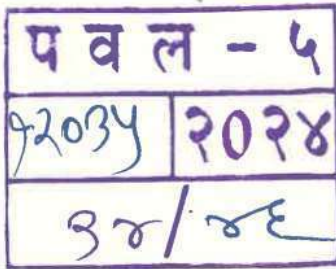 प व ल - ५
१२०३५ २०२४
३४/४६